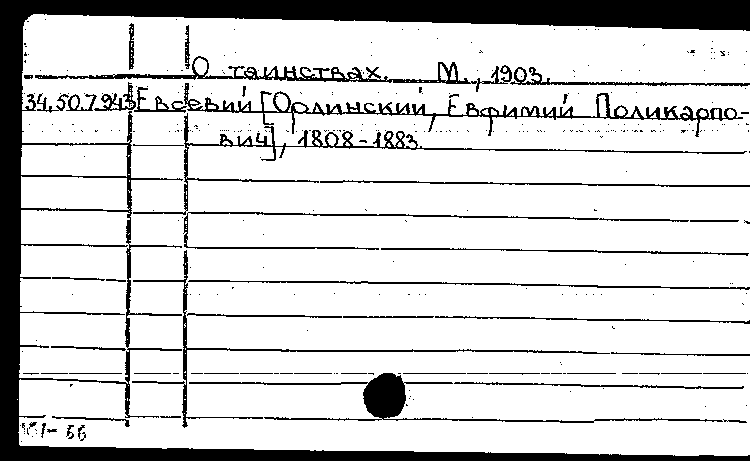 О таинствах. М., 1903.
34.50.7.943 Евсевий [Орлинский, Евфимий Поликарпо-
вич], 1808-1883.